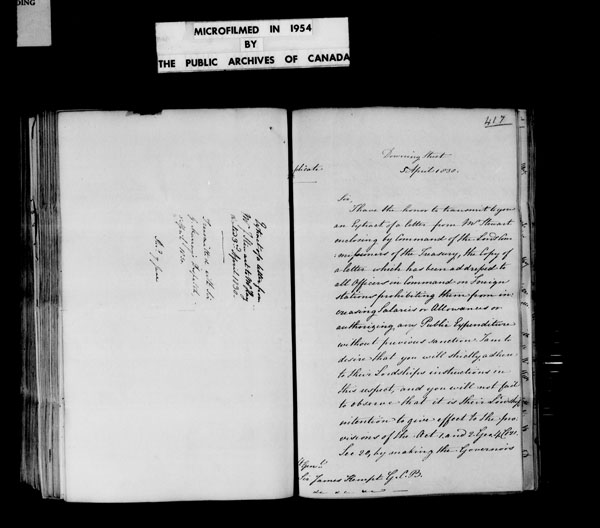 DING
MICROFILMED IN 1954
BY
THE PUBLIC ARCHIVES OF CANADA
Extract of a letter from
Mr J. Stewart to Mr Hay
dated 3rd April 1830.
Transmitted with Sir
G. Murray's Despatch
5 April 1830
417
Downing Street
5 April 1830.
plicate.
Sir,
I have the honor to transmit to you
an Extract of a letter from Mr Stewart
enclosing by Command of the Lords Com-
missioners of the Treasury, the Copy of
a letter which has been addressed to
all Officers in Command on Foreign
stations prohibiting them from in-
creasing Salaries or Allowances or
authorizing any Public Expenditure
without previous sanction. I am to
desire that you will strictly adhere
to their Lordships instructions in
this respect, and you will not fail
to observe that it is their Lordships
intention to give effect to the pro-
visions of the Act 1. and 2 Geo. 4
Sec 20, by making the Governors
Sir James Kempt G.C.B.